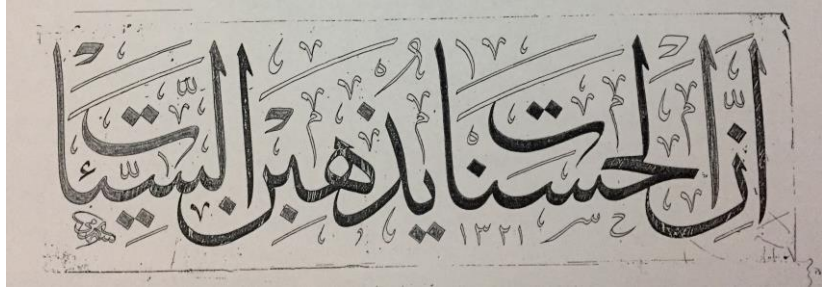 ان الحسنات يذهبن السيّئات
١٣٢١